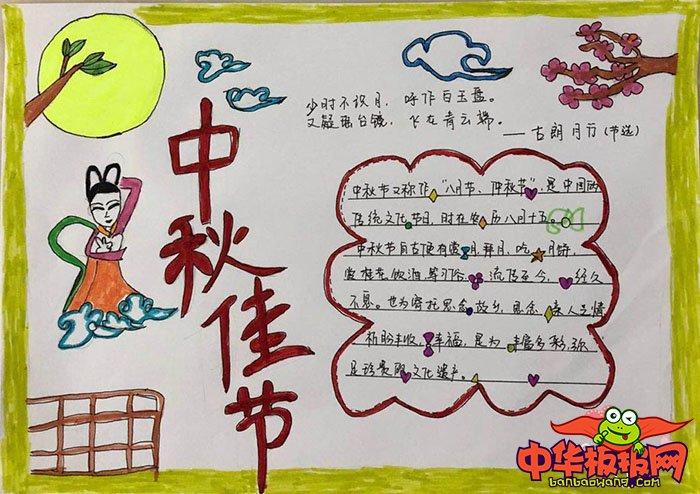 中秋佳节
少时不识月，呼作白玉盘。
又疑瑶台镜，飞在青云端。
——古朗月行（节选）
中秋节又称作“八月节、仲秋节”，是中国的
传统文化节日，时在农历八月十五。
中秋节自古便有赏月、拜月、吃月饼，
赏桂花、饮酒等习俗，流传至今，经久
不息。也为寄托思念故乡，思念亲人之情
祈盼丰收、幸福，是为丰富多彩，弥
足珍贵的文化遗产。
中华板报网
banbaowang.com